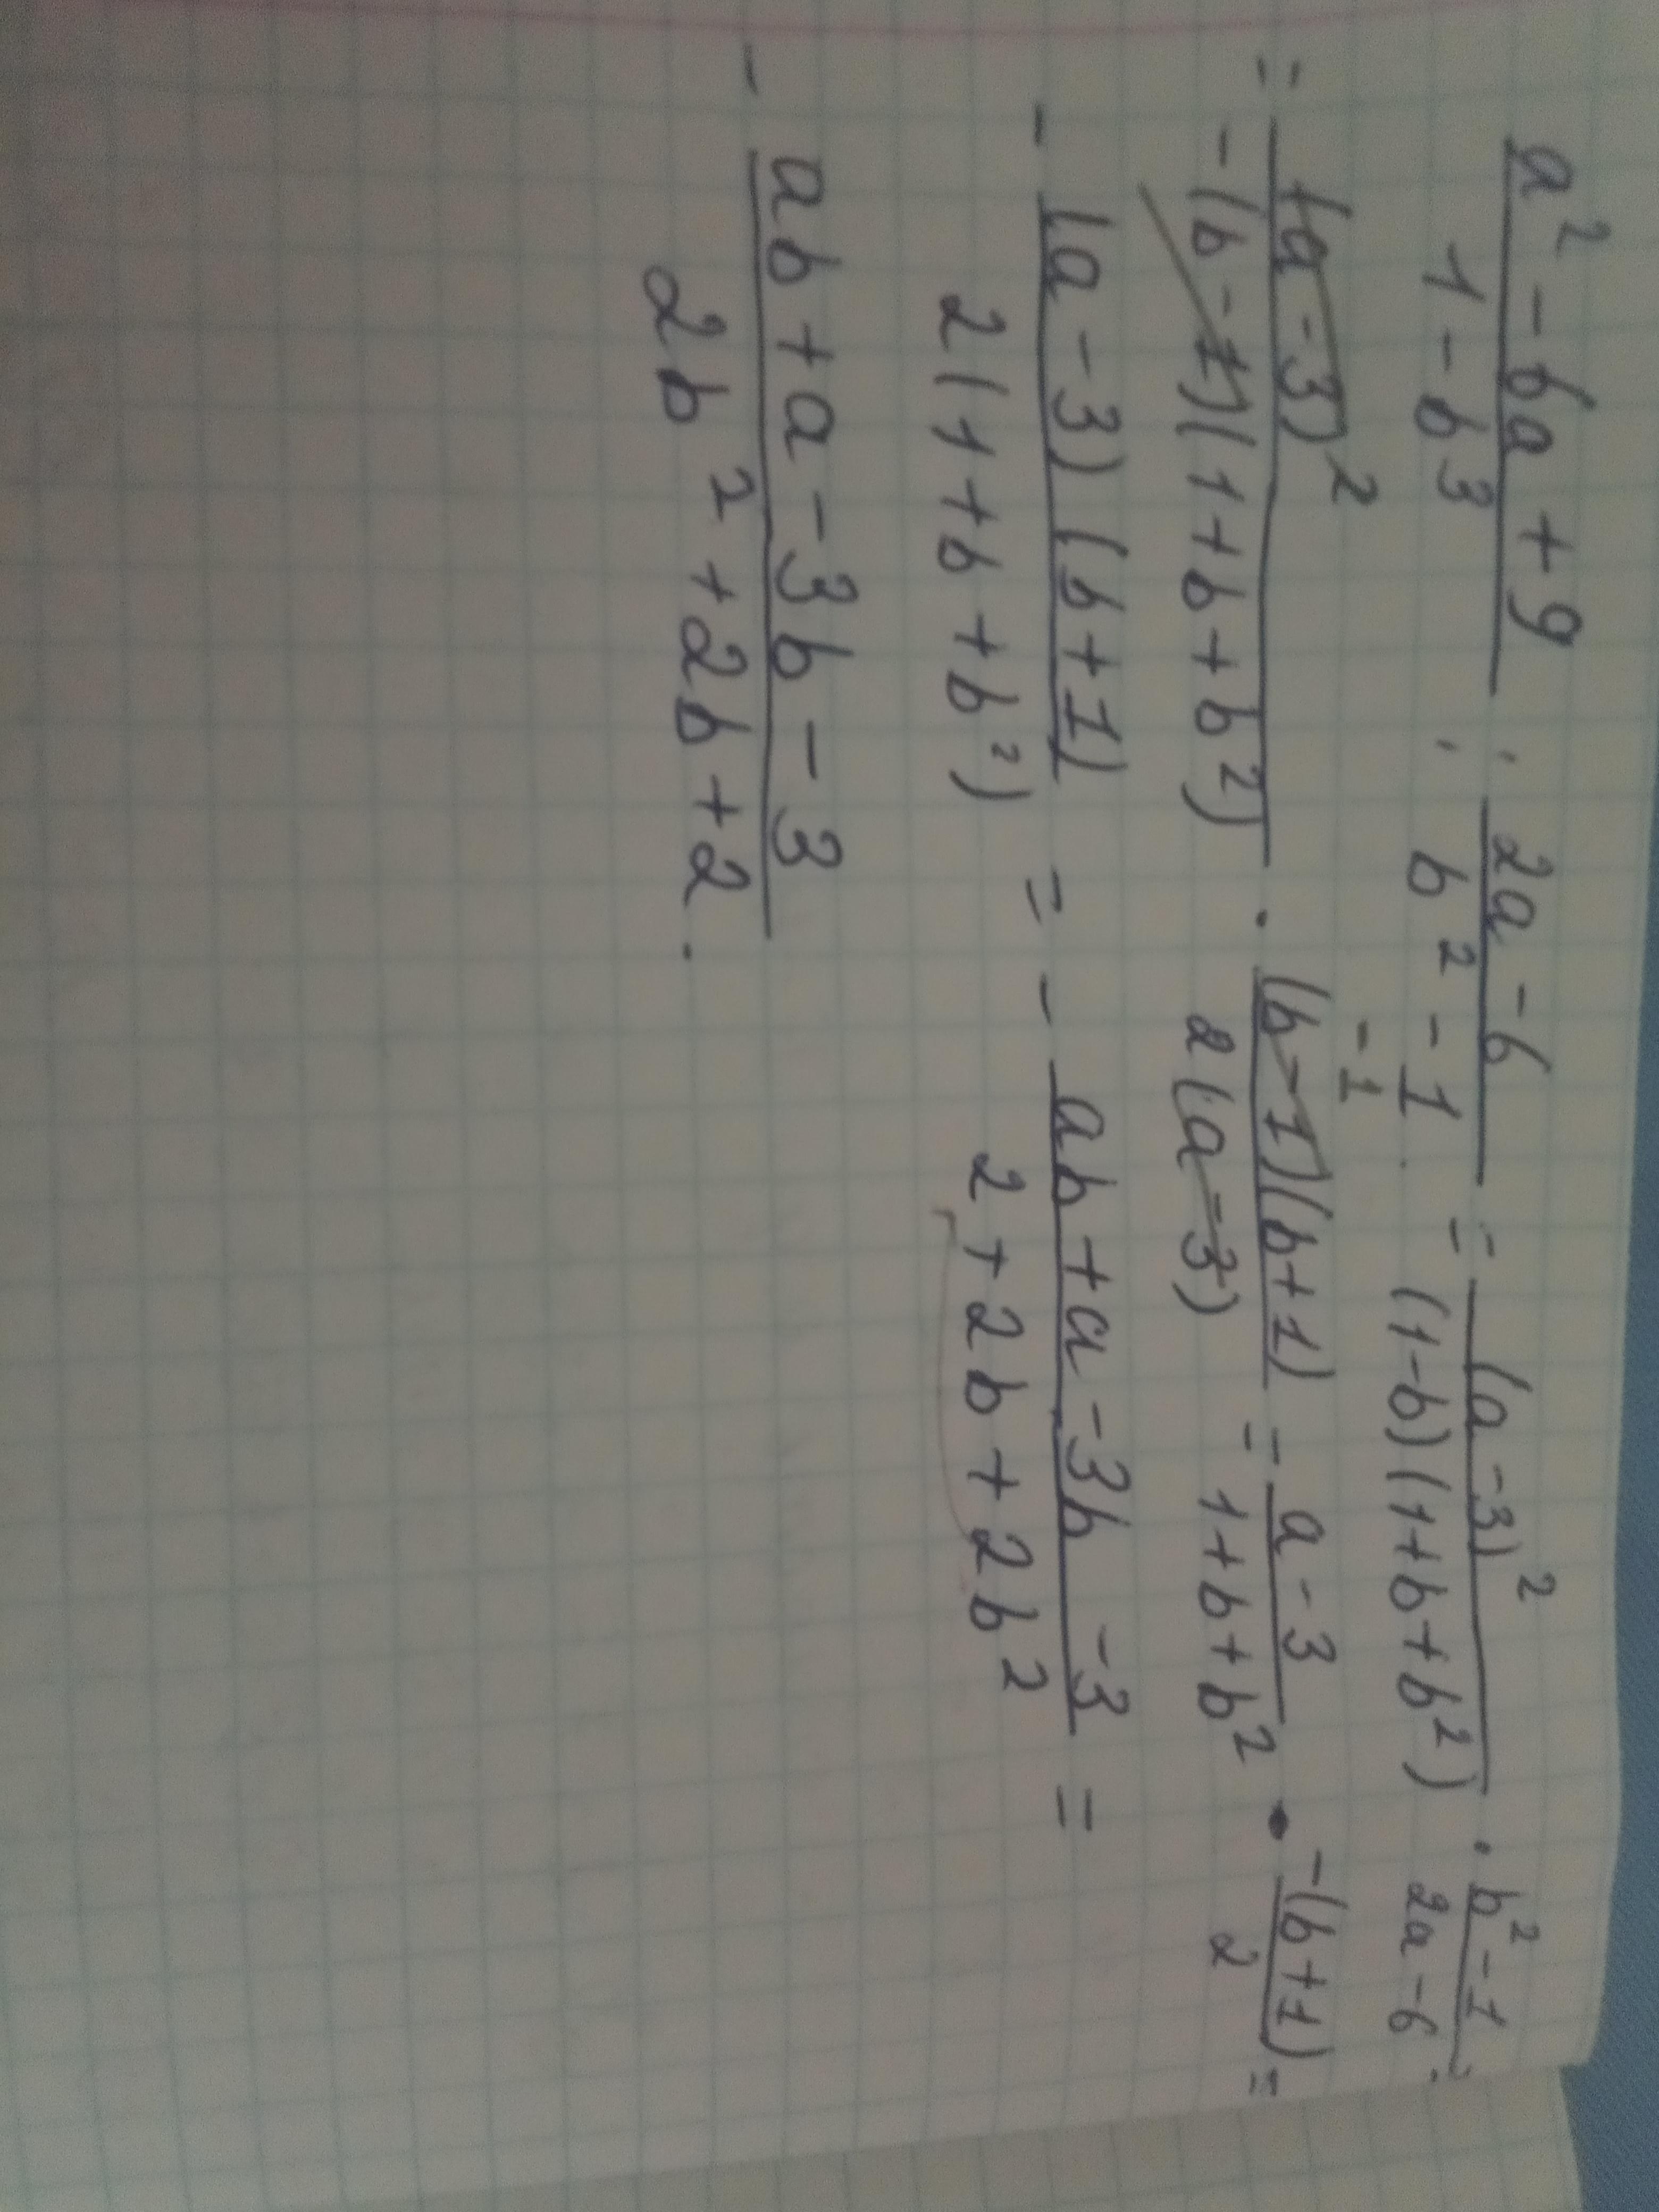 a² - 6a + 9 / 1 - b³ : 2a - 6 / b² - 1 = (a - 3)² / (1 - b)(1 + b + b²) · b² - 1 / 2a - 6 =
= (a - 3)² / -(b - 1)(1 + b + b²) · (b - 1)(b + 1) / 2(a - 3) = a - 3 / 1 + b + b² · -(b + 1) / 2 =
- (a - 3)(b + 1) / 2(1 + b + b²) = - ab + a - 3b - 3 / 2 + 2b + 2b² =
- ab + a - 3b - 3 / 2b² + 2b + 2.